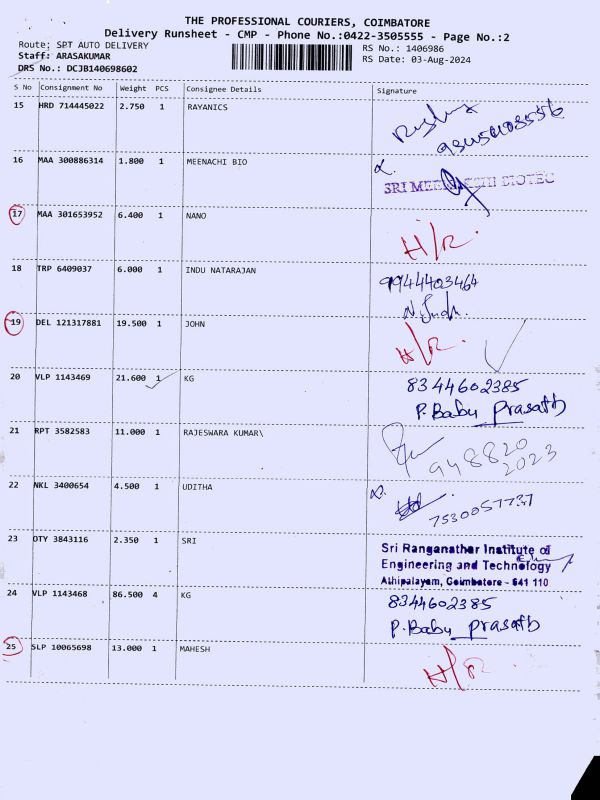 THE PROFESSIONAL COURIERS, COIMBATORE
Delivery Runsheet - CMP - Phone No.:0422-3505555 - Page No.:2
Route: SPT AUTO DELIVERY
Staff: ARASAKUMAR
DRS No.: DCJB140698602
RS No.: 1406986
RS Date: 03-Aug-2024
S No Consignment No Weight PCS Consignee Details Signature
15 HRD 714445022 2.750 1 RAYANICS
16 MAA 300886314 1.800 1 MEENACHI BIO
17 MAA 301653952 6.400 1 NANO H/R.
18 TRP 6409037 6.000 1 INDU NATARAJAN 9944403464
19 DEL 121317881 19.500 1 JOHN H/R.
20 VLP 1143469 21.600 1 KG 8344602385
P. Babu Prasath
21 RPT 3582583 11.000 1 RAJESWARA KUMAR\ 948820
2023
22 NKL 3400654 4.500 1 UDITHA 7530057737
23 OTY 3843116 2.350 1 SRI Sri Ranganathar Institute of
Engineering and Technology
Athipalayam, Coimbatore - 641 110
24 VLP 1143468 86.500 4 KG 8344602385
P. Babu Prasath
25 SLP 10065698 13.000 1 MAHESH H/R.